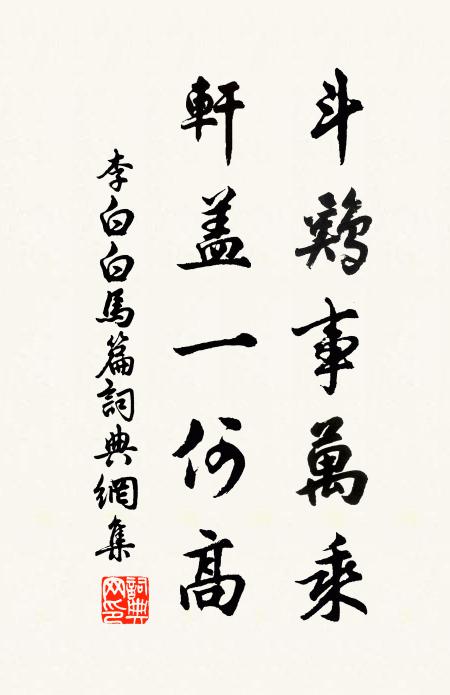 斗鷄事萬乘
軒盖一何高
李白白馬篇詞典網集
詞典網印